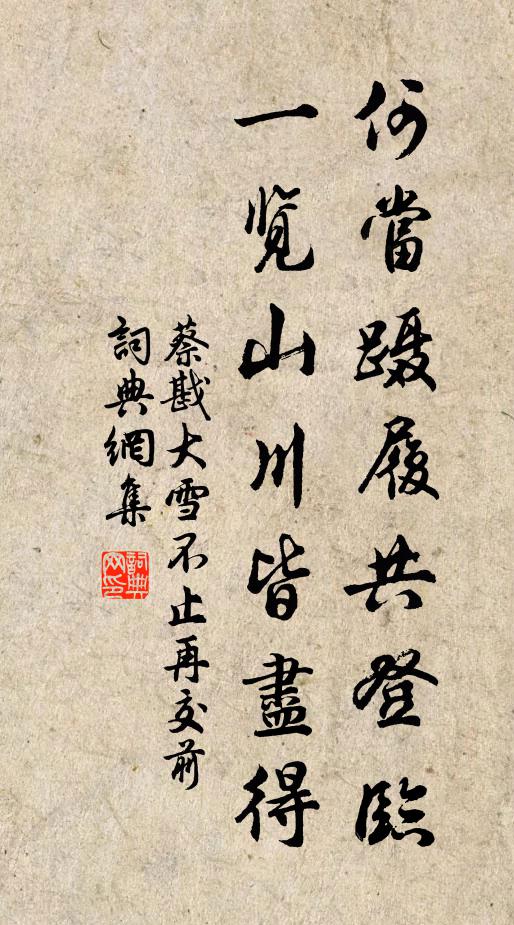 何當躡履共登臨
一覽山川皆盡得
蔡戡大雪不止再交前
詞典網集
詞典网印